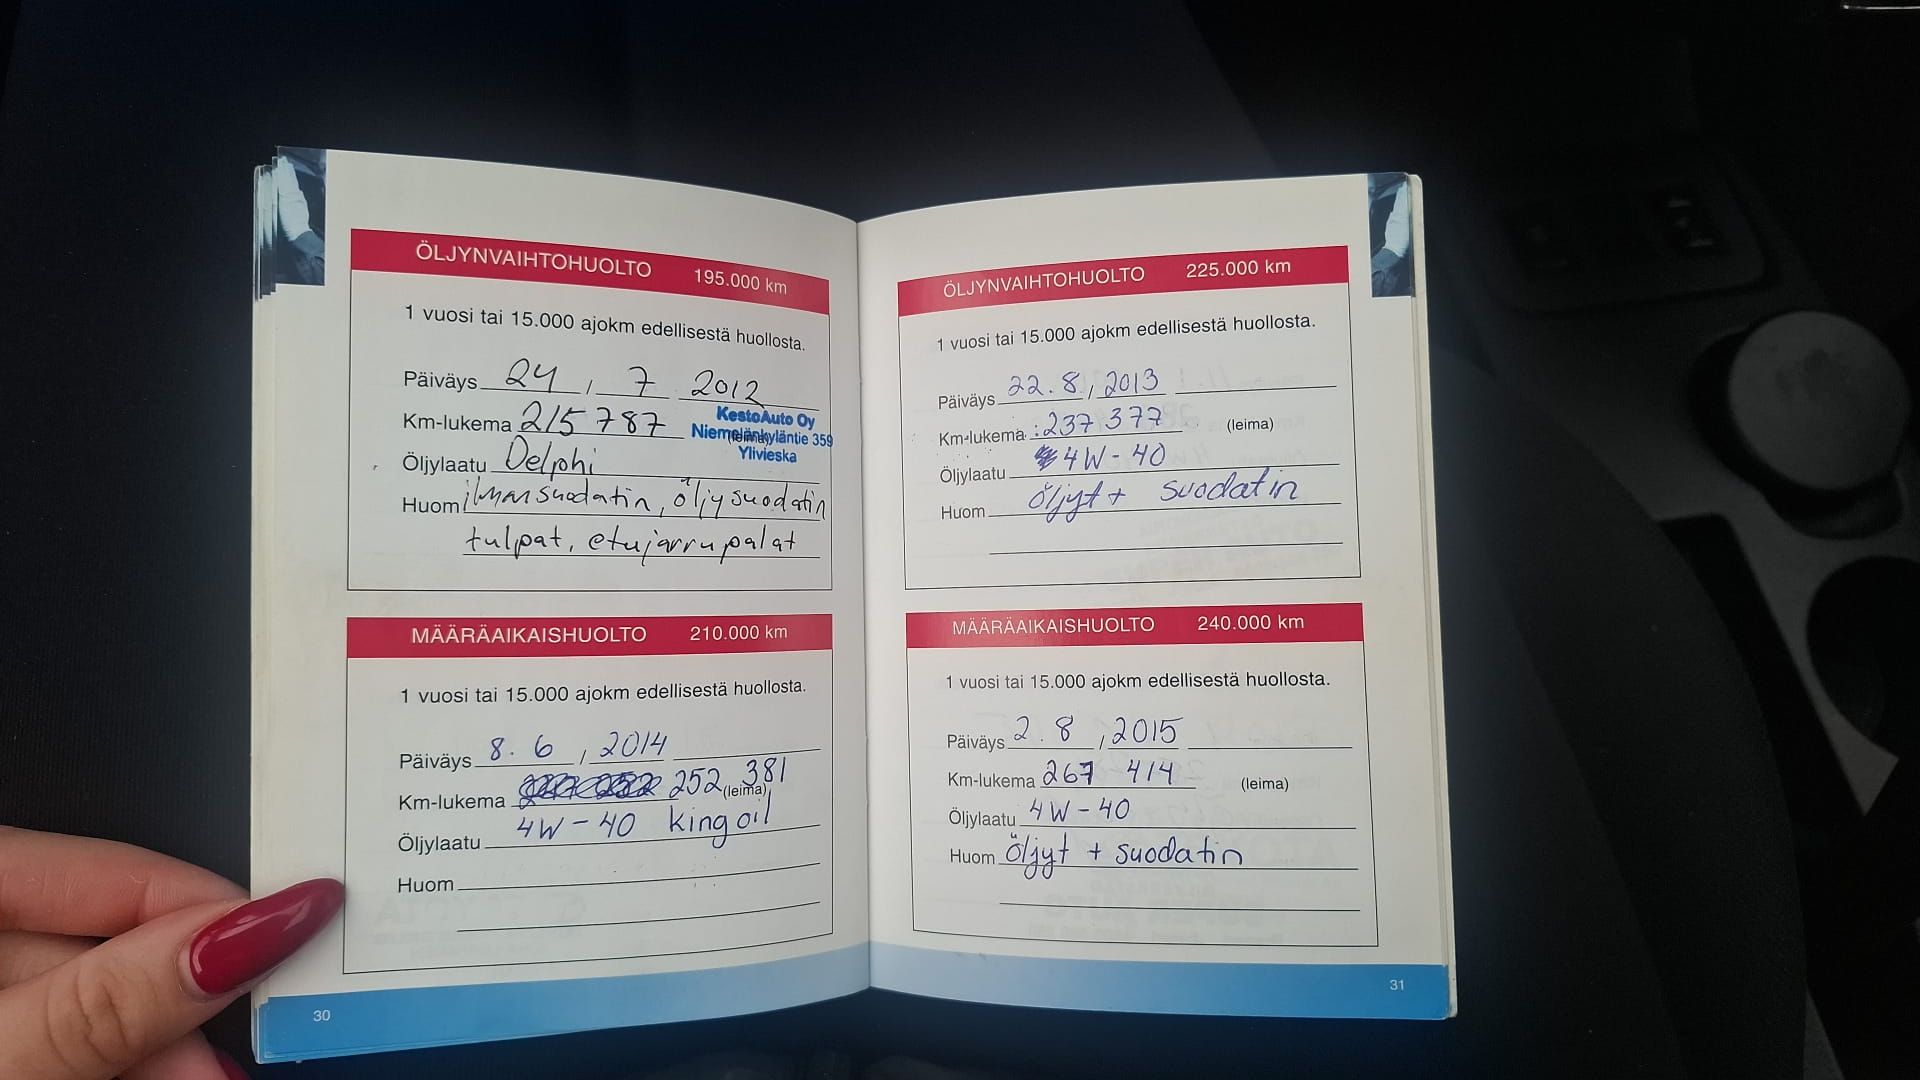 ÖLJYNVAIHTOHUOLTO 195.000 km
1 vuosi tai 15.000 ajokm edellisestä huollosta.
Päiväys 24 , 7 2012
Km-lukema 215 787
KestoAuto Oy
Niemelänkyläntie 359
(leima)
Ylivieska
Öljylaatu Delphi
Huom ilmansuodatin, öljysuodatin
tulpat, etujarrupalat
MÄÄRÄAIKAISHUOLTO 210.000 km
1 vuosi tai 15.000 ajokm edellisestä huollosta.
Päiväys 8. 6 , 2014
Km-lukema 252 381
(leima)
Öljylaatu 4W-40 king oil
Huom
30
ÖLJYNVAIHTOHUOLTO 225.000 km
1 vuosi tai 15.000 ajokm edellisestä huollosta.
Päiväys 22. 8, 2013
Km-lukema :237 377 (leima)
Öljylaatu 4W-40
Huom öljyt + suodatin
MÄÄRÄAIKAISHUOLTO 240.000 km
1 vuosi tai 15.000 ajokm edellisestä huollosta.
Päiväys 2. 8 , 2015
Km-lukema 267 414 (leima)
Öljylaatu 4W-40
Huom öljyt + suodatin
31